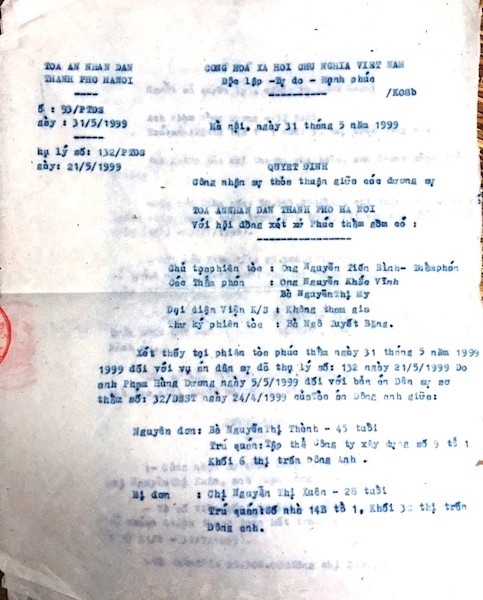 TOA AN NHAN DAN
THANH PHO HANOI
CONG HOA XA HOI CHU NGHIA VIET NAM
Độc lập - Tự do - Hạnh phúc
/KOSb
ố : 90/PTDS
gày : 31/5/1999
Hà nội, ngày 31 tháng 5 năm 1999
hụ lý số: 132/PTDS
gày: 21/5/1999
QUYET DINH
Công nhận sự thỏa thuận giữa các đương sự
TOA ANNHAN DAN THANH PHO HA NOI
Với hội đồng xét xử Phúc thẩm gồm có :
Chủ tọaphiên tòa : Ong Nguyễn Tiến Bình- Thẩmphán
Các Thẩm phán : Ong Nguyễn Khắc Vĩnh
Bà NguyễnThị My
Đại diện Viện K/S : Không tham gia
Thư ký phiên tòa : Bà Ngô Tuyết Băng.
Xét thấy tại phiên tòa phúc thẩm ngày 31 tháng 5 năm 1999
1999 đối với vụ án dân sự đã thụ lý số: 132 ngày 21/5/1999 Do
anh Phạm Hùng Dương ngày 5/5/1999 đối với bản án Dân sự sơ
thẩm số: 32/DSST ngày 24/4/1999 củaTòa án Đông anh giữa:
Nguyên đơn: Bà NguyễnThị Thành - 45 tuổi
Trú quán:Tập thể Công ty xây dựng số 9 tổ 1
Khối 6 thị trấn Đông Anh .
Bị đơn : Chị Nguyễn Thị Xuân - 28 tuổi
Trú quán:Số nhà 14B tổ 1, Khối 3c thị trấn
Đông anh.